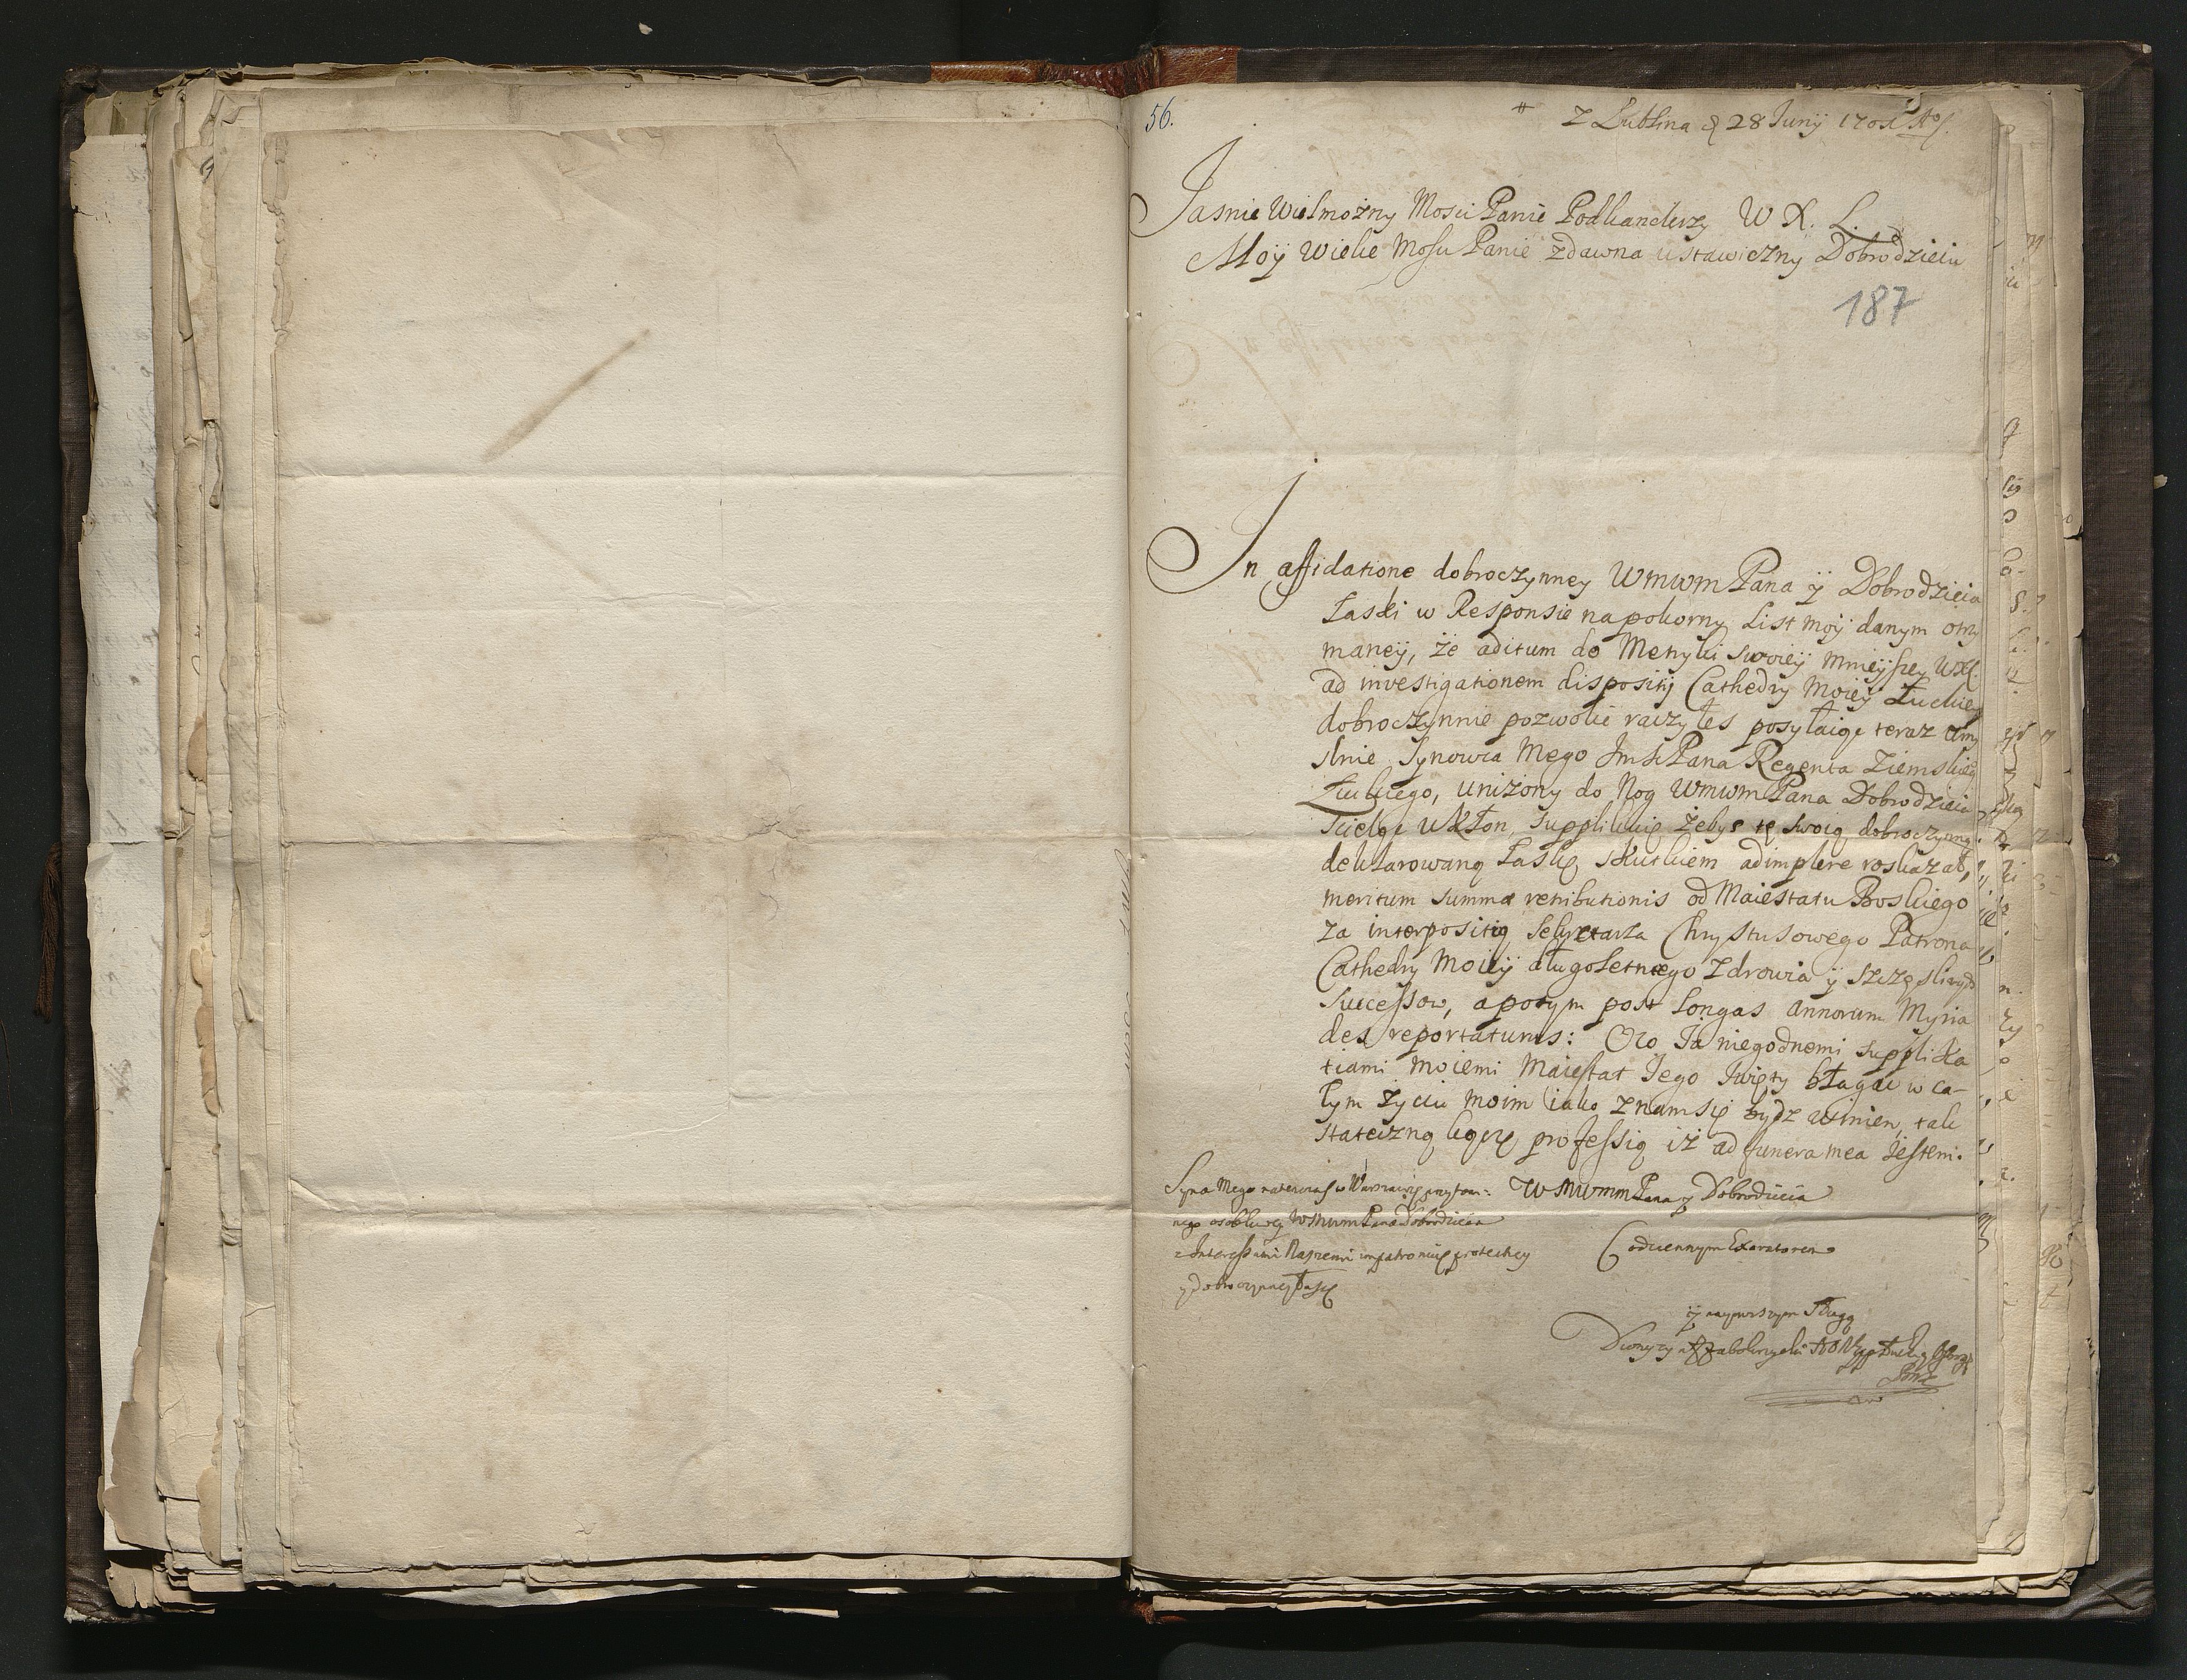 56.
# Z Lublina d 28 Junÿ 1701 Ao
Jasnie Wielmożny Mosci Panie Podkanclerzy W X. L.
Moÿ Wielce Mosci Panie zdawna ustawiczny Dobrodzieiu
187
In affidatione dobroczynney WMWM Pana ÿ Dobrodzieia
Łaski w Responsie na pokorny List moÿ danym otrzy
maneÿ, że aditum do Metryki swoieÿ mnieÿszey WXL.
ad investigationem dispositÿ Cathedry Moieÿ Łuckiey
dobroczynnie pozwolić raczyłes posyłaiąc teraz umy
slnie Synowca Mego Jmści Pana Regenta Ziemskiego
Łuckiego, uniżony do Nog WMWM Pana Dobrodzieia
scieląc ukłon, supplikuię żebys tę swoią dobroczynną
deklarowaną Łaskę skutkiem adimplere roskazał,
meritum summæ retributionis od Maiestatu Boskiego
za interpositią Sekretarza Chrystusowego Patrona
Cathedry Moieÿ długoletnego zdrowia ÿ szczęsliwych
successow, a potym post longas annorum Myria
des reportaturus: Oco Ja niegodnemi supplika
tiami moiemi Maiestat Jego Swięty błagać w ca-
łym życiu moim iako znam się bydz winien, tak
stateczną kączę professią iż ad funera mea iestem.
Syna Mego natenczas w Warszawie przytom=
nego osobliwey WMWM Pana Dobrodzieia
z Interessami Naszemi impatronuię protekcy
y dobroczynney Łasce
WMWMM Pana y Dobrodzieia
Codziennym Exoratorem
ÿ naypierwszym Sługą
Dionyzy Żabokrzycki